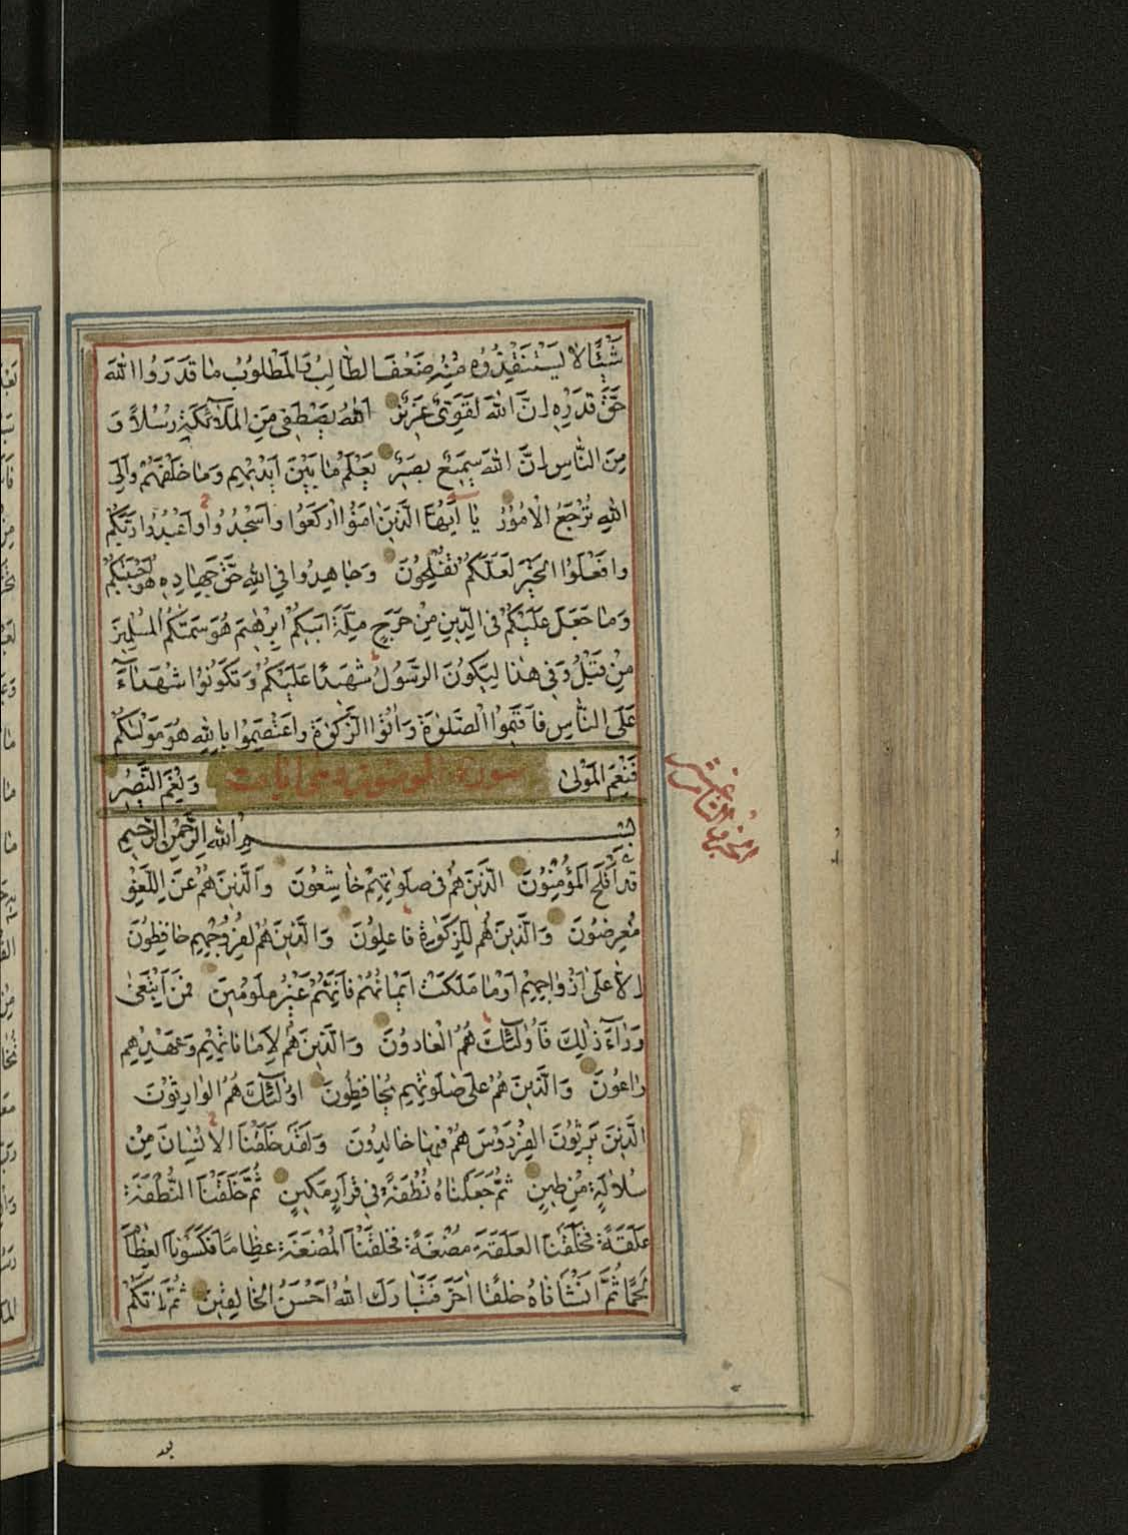 شَيْئًا لَا يَسْتَنْقِذُوهُ مِنْهُ ضَعُفَ الطَّالِبُ وَالْمَطْلُوبُ مَا قَدَرُوا اللَّهَ
حَقَّ قَدْرِهِ إِنَّ اللَّهَ لَقَوِيٌّ عَزِيزٌ اَللَّهُ يَصْطَفِي مِنَ الْمَلَائِكَةِ رُسُلًا وَ
مِنَ النَّاسِ إِنَّ اللَّهَ سَمِيعٌ بَصِيرٌ يَعْلَمُ مَا بَيْنَ أَيْدِيهِمْ وَمَا خَلْفَهُمْ وَإِلَى
اللَّهِ تُرْجَعُ الْأُمُورُ يَا أَيُّهَا الَّذِينَ آمَنُوا ارْكَعُوا وَاسْجُدُوا وَاعْبُدُوا رَبَّكُمْ
وَافْعَلُوا الْخَيْرَ لَعَلَّكُمْ تُفْلِحُونَ وَجَاهِدُوا فِي اللَّهِ حَقَّ جِهَادِهِ هُوَ اجْتَبَاكُمْ
وَمَا جَعَلَ عَلَيْكُمْ فِي الدِّينِ مِنْ حَرَجٍ مِلَّةَ أَبِيكُمْ إِبْرٰهِيمَ هُوَ سَمَّاكُمُ الْمُسْلِمِينَ
مِنْ قَبْلُ وَفِي هٰذَا لِيَكُونَ الرَّسُولُ شَهِيدًا عَلَيْكُمْ وَتَكُونُوا شُهَدَاءَ
عَلَى النَّاسِ فَأَقِيمُوا الصَّلٰوةَ وَآتُوا الزَّكٰوةَ وَاعْتَصِمُوا بِاللَّهِ هُوَ مَوْلٰيكُمْ
فَنِعْمَ الْمَوْلٰى سورة المومنون ايات وَنِعْمَ النَّصِيرُ
بِسْمِ اللَّهِ الرَّحْمٰنِ الرَّحِيمِ
قَدْ أَفْلَحَ الْمُؤْمِنُونَ الَّذِينَ هُمْ فِي صَلَوتِهِمْ خَاشِعُونَ وَالَّذِينَ هُمْ عَنِ اللَّغْوِ
مُعْرِضُونَ وَالَّذِينَ هُمْ لِلزَّكَوةِ فَاعِلُونَ وَالَّذِينَ هُمْ لِفُرُوجِهِمْ حَافِظُونَ
إِلَّا عَلَى أَزْوَاجِهِمْ أَوْ مَا مَلَكَتْ أَيْمَانُهُمْ فَإِنَّهُمْ غَيْرُ مَلُومِينَ فَمَنِ ابْتَغٰى
وَرَاءَ ذٰلِكَ فَأُولٰئِكَ هُمُ الْعَادُونَ وَالَّذِينَ هُمْ لِأَمَانَاتِهِمْ وَعَهْدِهِمْ
رَاعُونَ وَالَّذِينَ هُمْ عَلَى صَلَوَاتِهِمْ يُحَافِظُونَ أُولٰئِكَ هُمُ الْوَارِثُونَ
الَّذِينَ يَرِثُونَ الْفِرْدَوْسَ هُمْ فِيهَا خَالِدُونَ وَلَقَدْ خَلَقْنَا الْإِنْسَانَ مِنْ
سُلَالَةٍ مِنْ طِينٍ ثُمَّ جَعَلْنَاهُ نُطْفَةً فِي قَرَارٍ مَكِينٍ ثُمَّ خَلَقْنَا النُّطْفَةَ
عَلَقَةً فَخَلَقْنَا الْعَلَقَةَ مُضْغَةً فَخَلَقْنَا الْمُضْغَةَ عِظَامًا فَكَسَوْنَا الْعِظَامَ
لَحْمًا ثُمَّ أَنْشَأْنَاهُ خَلْقًا آخَرَ فَتَبَارَكَ اللَّهُ أَحْسَنُ الْخَالِقِينَ ثُمَّ إِنَّكُمْ
بعد